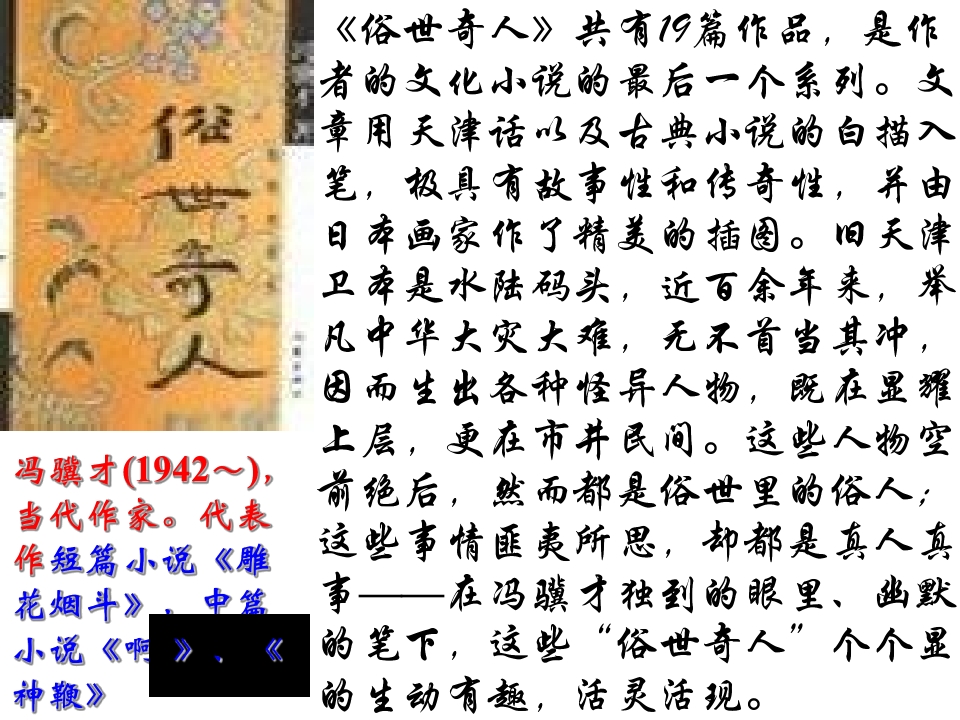 俗世奇人
冯骥才(1942～),
当代作家。代表
作短篇小说《雕
花烟斗》，中篇
小说《啊》、《
神鞭》
《俗世奇人》共有19篇作品，是作
者的文化小说的最后一个系列。文
章用天津话以及古典小说的白描入
笔，极具有故事性和传奇性，并由
日本画家作了精美的插图。旧天津
卫本是水陆码头，近百余年来，举
凡中华大灾大难，无不首当其冲，
因而生出各种怪异人物，既在显耀
上层，更在市井民间。这些人物空
前绝后，然而都是俗世里的俗人；
这些事情匪夷所思，却都是真人真
事——在冯骥才独到的眼里、幽默
的笔下，这些“俗世奇人”个个显
的生动有趣，活灵活现。